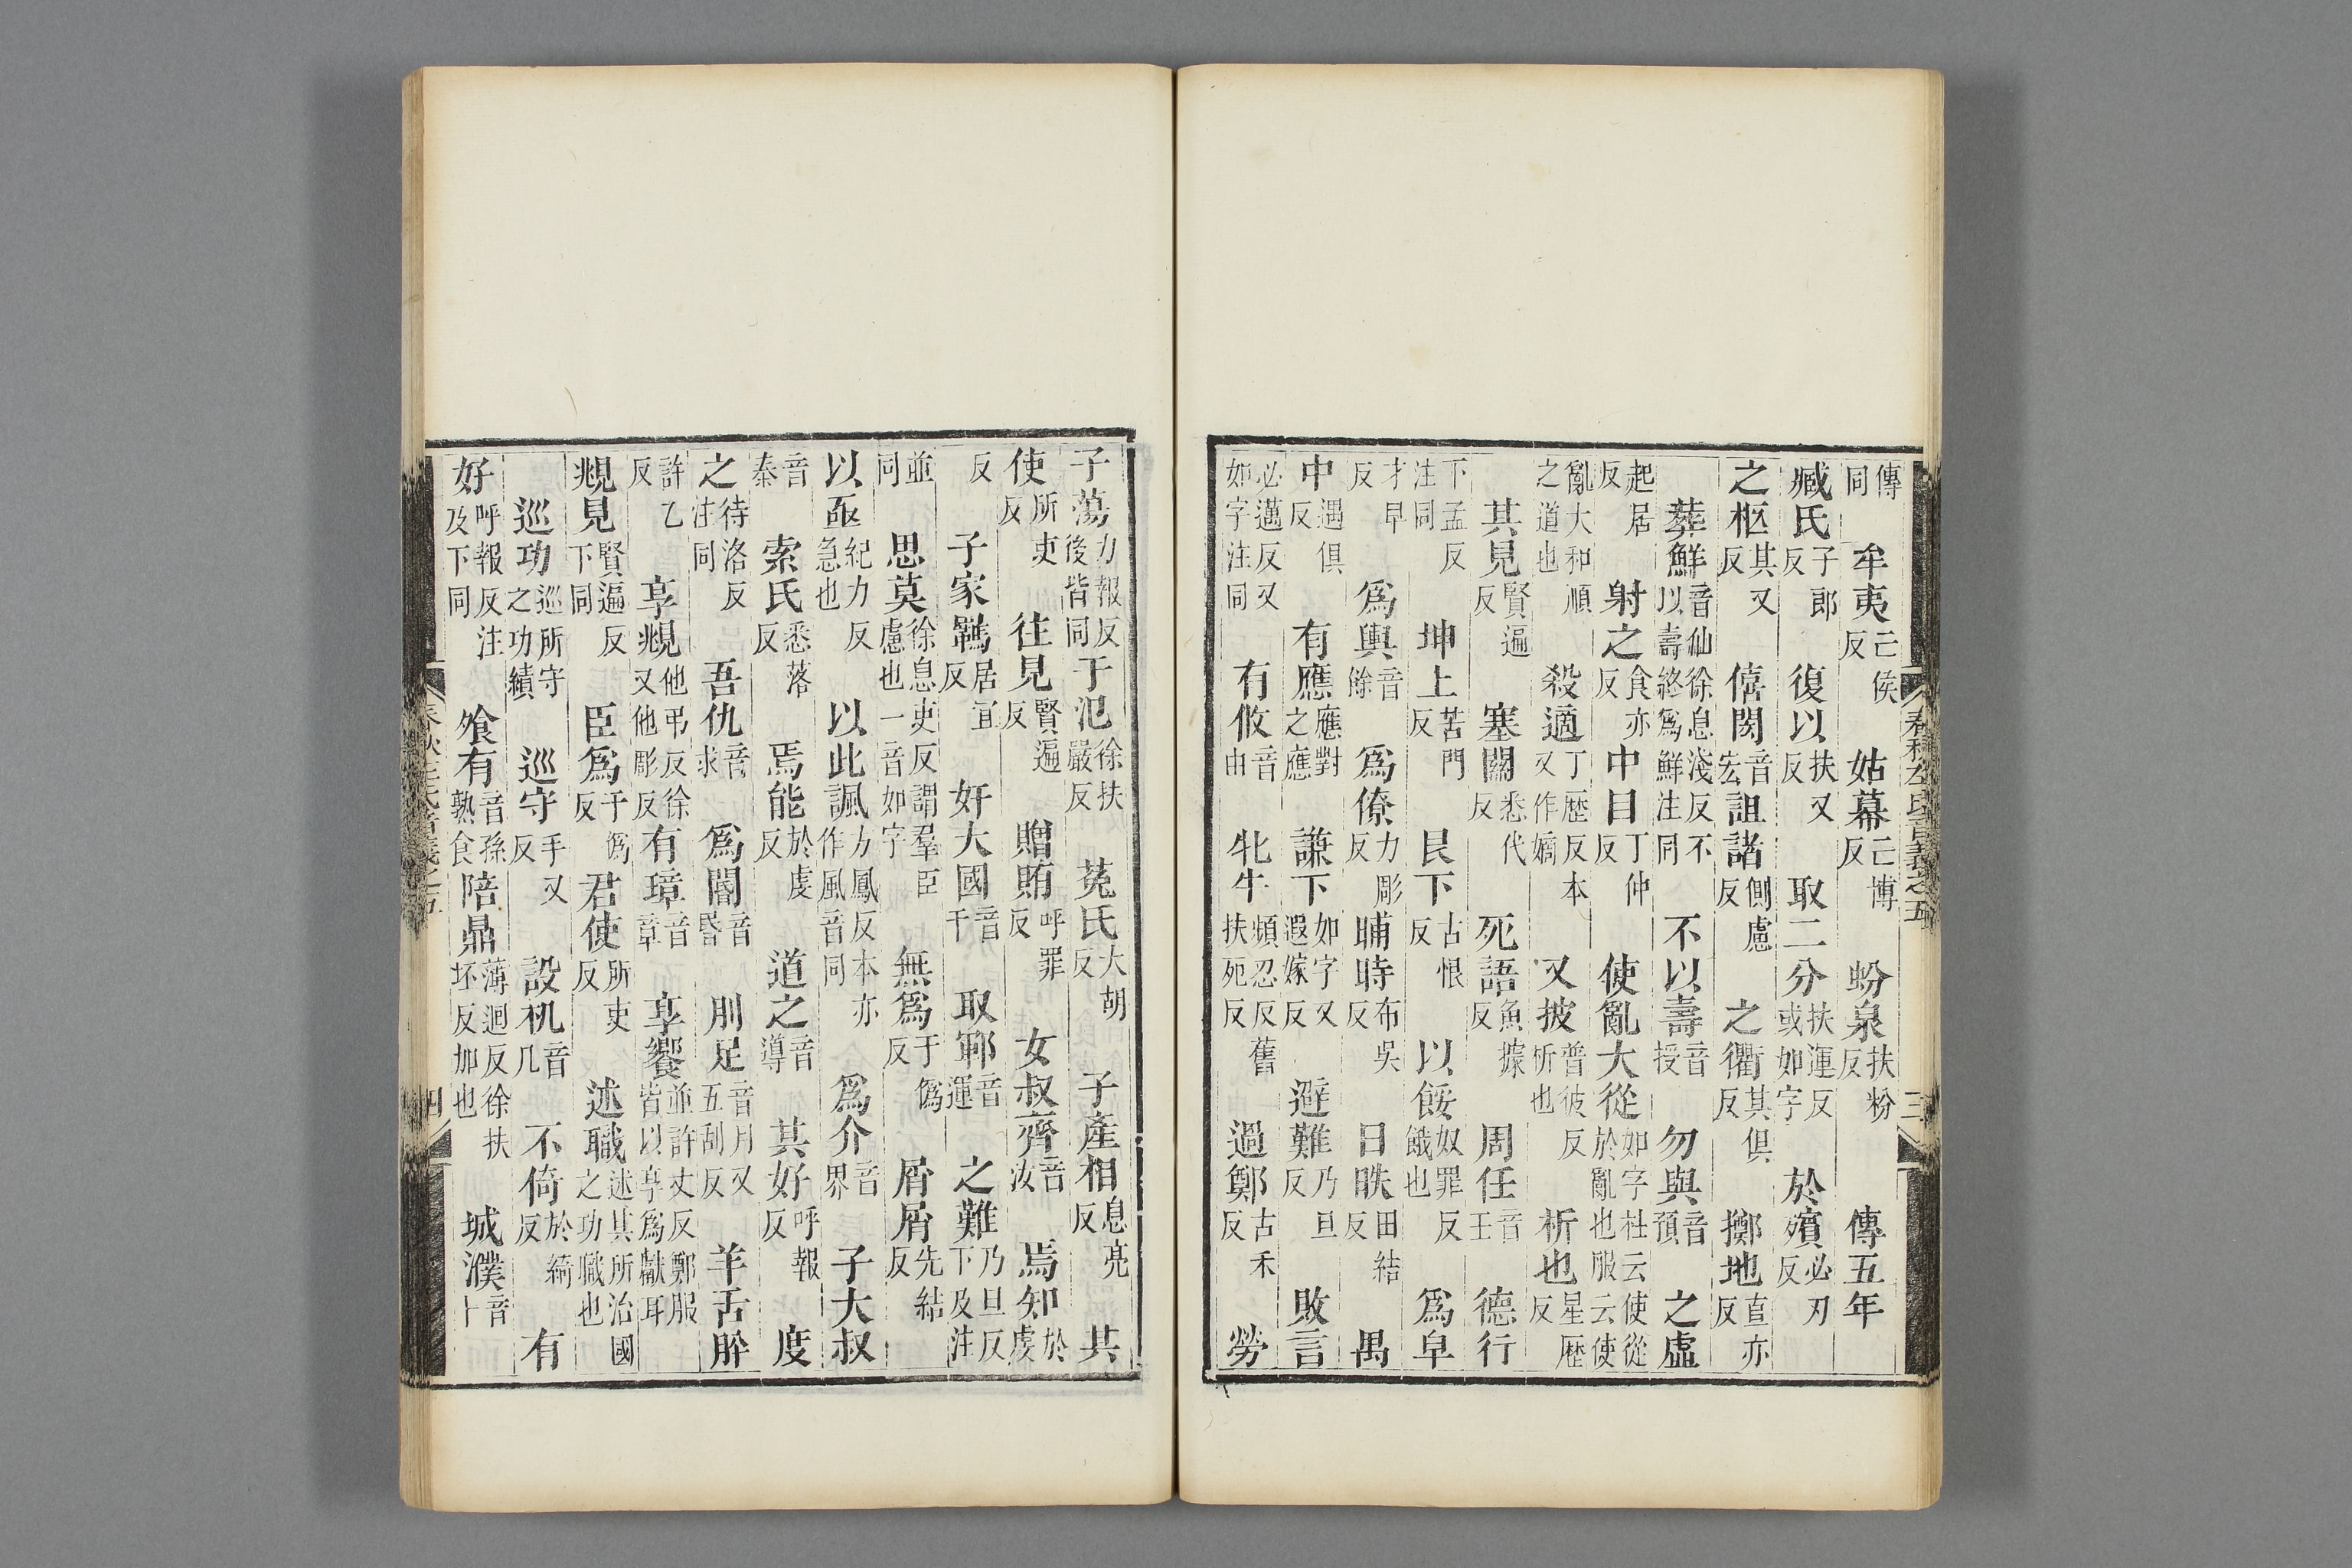 傳同　牟夷亡侯反　姑幕亡博反　蚡泉扶粉反　傳五年
臧氏子郎反　復以扶又反　取二分扶運反或如字　於殯必刃反
之柩其又反　僖閎音宏　詛諸側慮反　之衢其俱反　擲地直亦反
葬鮮音仙徐息淺反不以壽終爲鮮注同　不以壽音授　勿與音預　之虛
起居反　射之食亦反　中目丁仲反　使亂大從如字杜云使從於亂也服云使
亂大和順之道也　殺適丁歷反本又作嫡　又披普彼反析也　析也星歷反
其見賢遍反　塞關悉代反　死語魚據反　周任音壬　德行
下孟反注同　坤上苦門反　艮下古恨反　以餒奴罪反餓也　爲皁
才早反　爲輿音餘　爲僚力彫反　晡時布吳反　日昳田結反　禺
中遇俱反　有應應對之應　謙下如字又遐嫁反　避難乃旦反　敗言
必邁反又如字注同　有攸音由　牝牛頻忍反舊扶死反　過鄭古禾反　勞
春秋左氏音義之五　三
子蕩力報反後皆同　于氾徐扶嚴反　菟氏大胡反　子產相息亮反　其
使所吏反　往見賢遍反　贈賄呼罪反　女叔齊音汝　焉知於虔
反　子家羈居宜反　奸大國音干　取鄆音運　之難乃旦反下及注
並同　思莫徐息吏反謂羣臣慮也一音如字　無爲于僞反　屑屑先結反
以亟紀力反急也　以此諷方鳳反本亦作風音同　爲介音界　子大叔
音泰　索氏悉落反　焉能於虔反　道之音導　其好呼報反　度
之待洛反注同　吾仇音求　爲閽音昏　刖足音月又五刮反　羊舌肸
許乙反　享覜他弔反徐又他彫反　有璋音章　享饗並許丈反鄭服皆以享爲獻耳
覜見賢遍反下同　臣爲于僞反　君使所吏反　述職述其所治國之功職也
巡功巡所守之功績　巡守手又反　設机音几　不倚於綺反　有
好呼報反注及下同　飧有音孫熟食　陪鼎薄迴反徐扶坯反加也　城濮音卜
春秋左氏音義之五　四